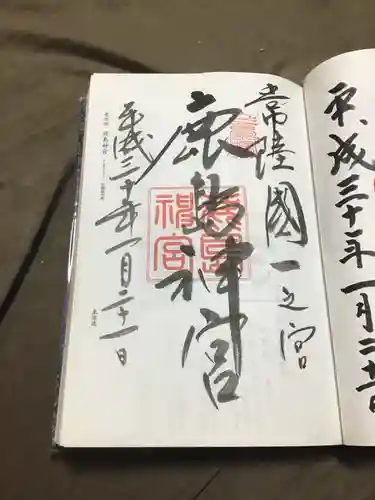 平成三十一年一月二十一日
常陸國一之宮
鹿島神宮
鹿島神宮
平成三十年一月二十一日
鹿島神宮